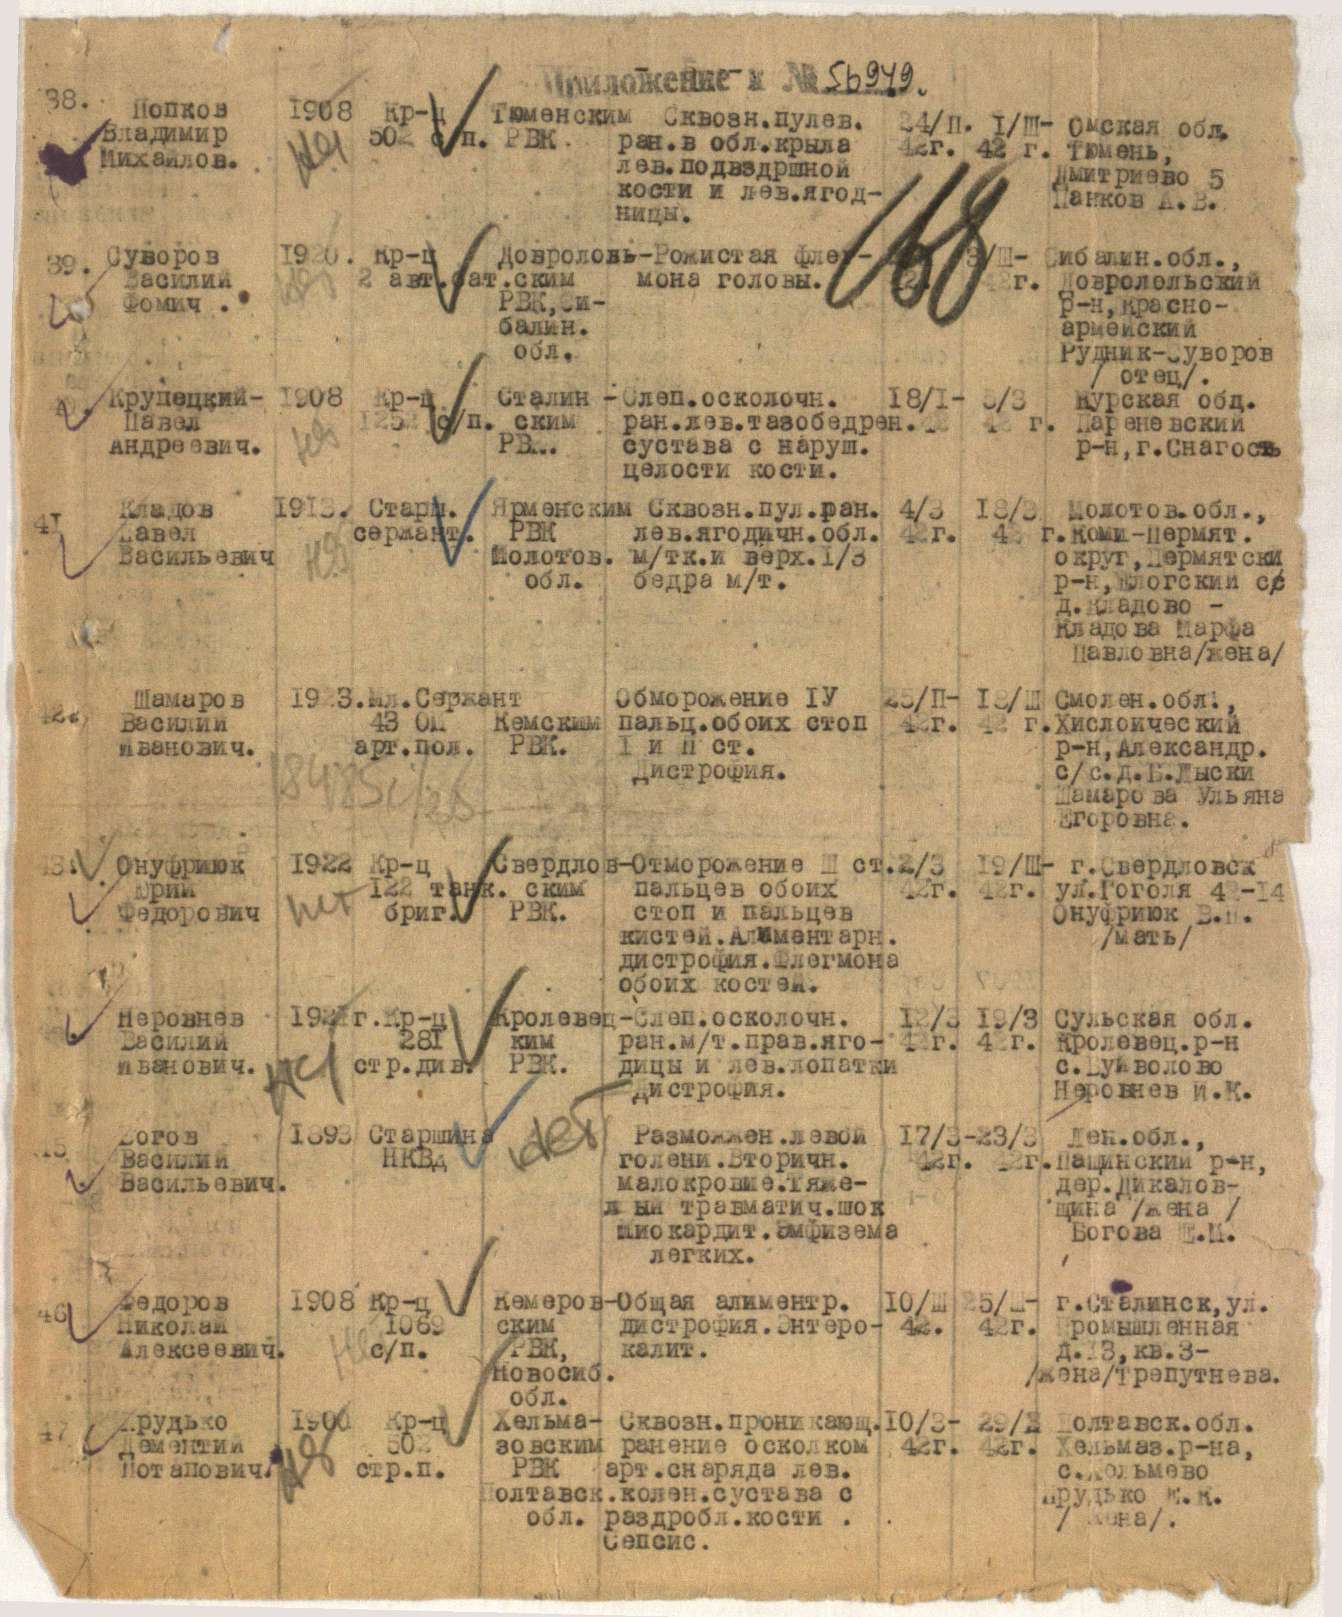 Приложение к № 56949.
38. Попков 1908 Кр-ц Тюменским Сквозн.пулев. 24/П. 1/Ш- Омская обл.
Владимир 502 с/п. РВК ран.в обл.крыла 42г. 42 г. Тюмень,
Михайлов. лев.подвздршной Дмитриево 5
кости и лев.ягод- Панков А.В.
ницы.
168
39. Суворов 1920. Кр-ц Довроловь-Рожистая флег- /Ш- Сибалин.обл.,
Василий 2 авт.бат.ским мона головы. г. Довролольский
Фомич . РВК,Си- р-н,Красно-
балин. армейский
обл. Рудник-Суворов
/ отец/.
Крупецкий- 1908 Кр-ц Сталин -Слеп.осколочн. 18/1- 5/3 Курская обд.
Павел 1252 с/п. ским ран.лев.тазобедрен. 42 42 г. Пареневский
Андреевич. РВК. сустава с наруш. р-н,г.Снагость
целости кости.
41 Кладов 1913. Старш. Ярменским Сквозн.пул.ран. 4/3 18/3 Молотов.обл.,
Павел сержант. РВК лев.ягодичн.обл. 42г. 42 г.Коми-Пермят.
Васильевич Молотов. м/тк.и верх.1/3 округ,Пермятски
обл. бедра м/т. р-н, с/с
д.Кладово -
Кладова Марфа
Павловна/жена/
42. Шамаров 1923.Мл.Сержант Обморожение 1У 25/П- 18/Ш Смолен.обл.,
Василий 43 ОП Кемским пальц.обоих стоп 42г. 42 г.Хислоический
Иванович. арт.пол. РВК. I и П ст. р-н,Александр.
Дистрофия. с/с.д.Б.Лыски
Шамарова Ульяна
Егоровна.
43. Онуфриюк 1922 Кр-ц Свердлов-Отморожение Ш ст.2/3 19/Ш- г.Свердловск
Юрий 122 танк. ским пальцев обоих 42г. 42г. ул.Гоголя 42-14
Федорович нет бриг. РВК. стоп и пальцев Онуфриюк В.П.
кистей.Алиментарн. /мать/
дистрофия.Флегмона
обоих костей.
Неровнев г.Кр-ц Кролевец-Слеп.осколочн. 12/3 19/3 Сульская обл.
Василий 281 ким ран.м/т.прав.яго- 42г. 42г. Кролевец.р-н
Иванович. стр.див. РВК. дицы и лев.лопатки с.Буйволово
Дистрофия. Неровнев И.К.
45 Богов 1893 Старшина нет Разможжен.левой 17/3-23/3 Лен.обл.,
Василий НКВД голени.Вторичн. 42г. 42г.Пащинский р-н,
Васильевич. малокровие.Тяже- дер.Дикалов-
лый травматич.шок щина /жена /
Миокардит.Эмфизема Богова
легких.
46 Федоров 1908 Кр-ц Кемеров-Общая алиментр. 10/Ш 25/Ш- г.Сталинск,ул.
Николай 1069 ским дистрофия.Энтеро- 42. 42г. Промышленная
Алексеевич. с/п. РВК, калит. д.13,кв.3-
Новосиб. /жена/Трепутнева.
обл.
47 Крудько 1900 Кр-ц Хельма- Сквозн.проникающ.10/3- 29/ Полтавск.обл.
Дементий 502 зовским ранение осколком 42г. 42г. Хельмаз.р-на,
Потапович. стр.п. РВК арт.снаряда лев. с.Хольмево
Полтавск.колен.сустава с Крудько
обл. раздробл.кости . / жена/.
Сепсис.